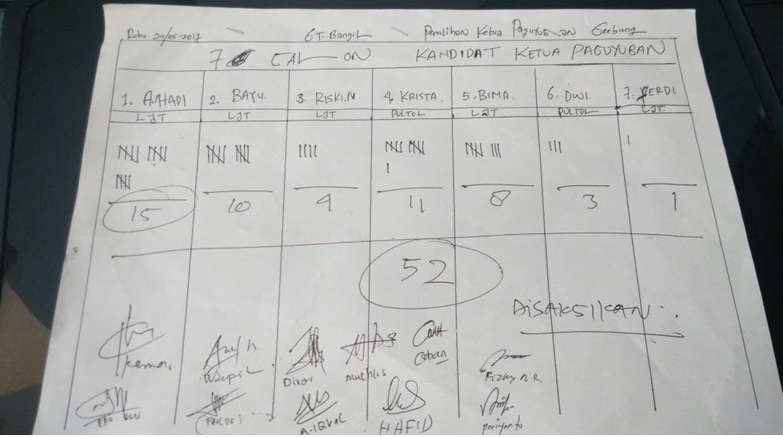 Rabu 24/05-2017 GT. Bangil Pemilihan Ketua Paguyuban Gerbang
7 CALON KANDIDAT KETUA PAGUYUBAN
1. A.HADI 2. BAYU. 3. RISKI.N 4. KRISTA. 5. BIMA. 6. DWI 7. FERDI
LJT LJT LJT PULTOL LJT PULTOL LJT.
15 10 4 11 8 3 1
52
DISAKSIKAN :.
Dixon Muchlis Coban
A.IQVAL HAFID pariyanto